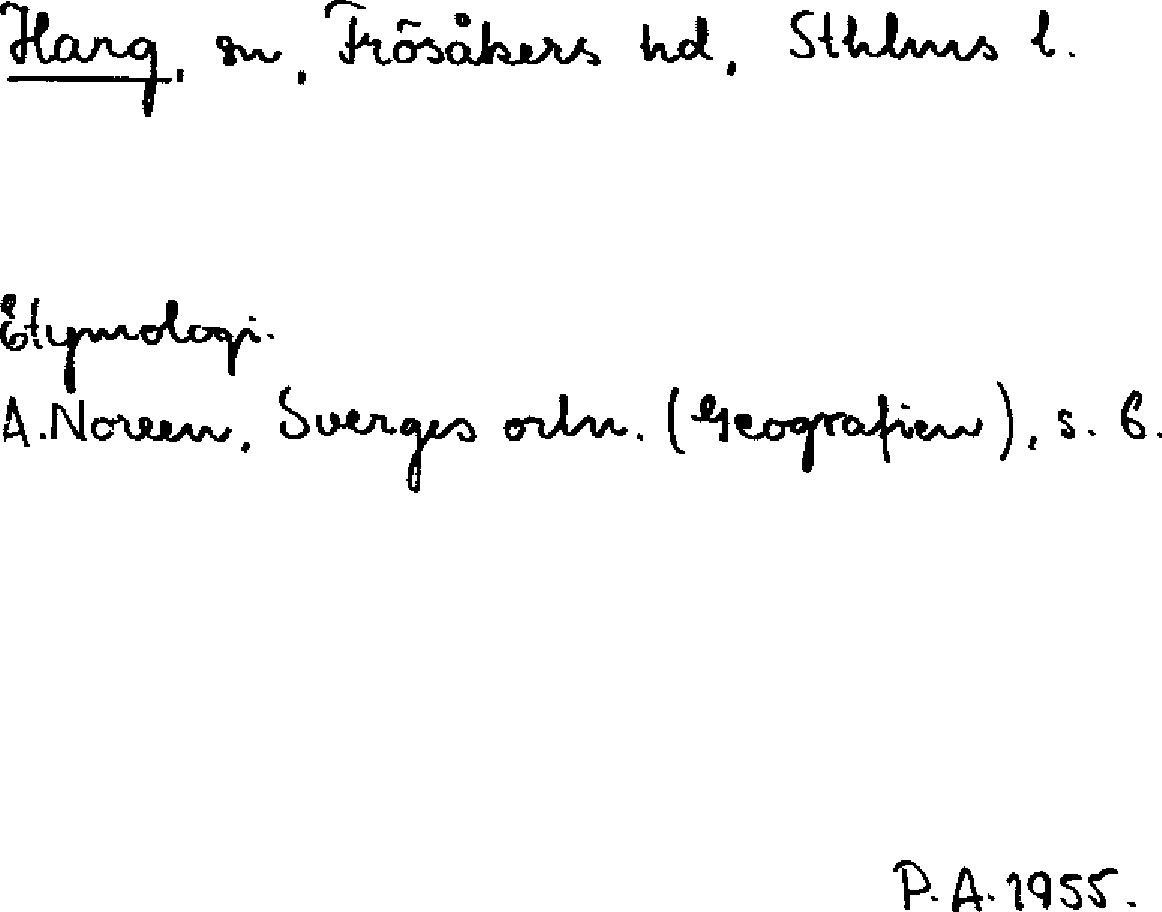 Harg, sn, Frösåkers hd, Sthlms l.
Etymologi.
A. Noreen, Sverges ortn. (Geografien), s. 6.
P. A. 1955.